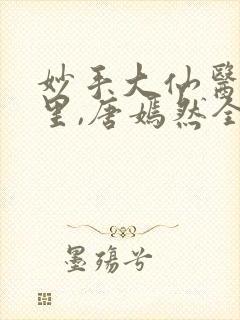 妙手大仙醫
里,唐嫣然全
墨殤兮